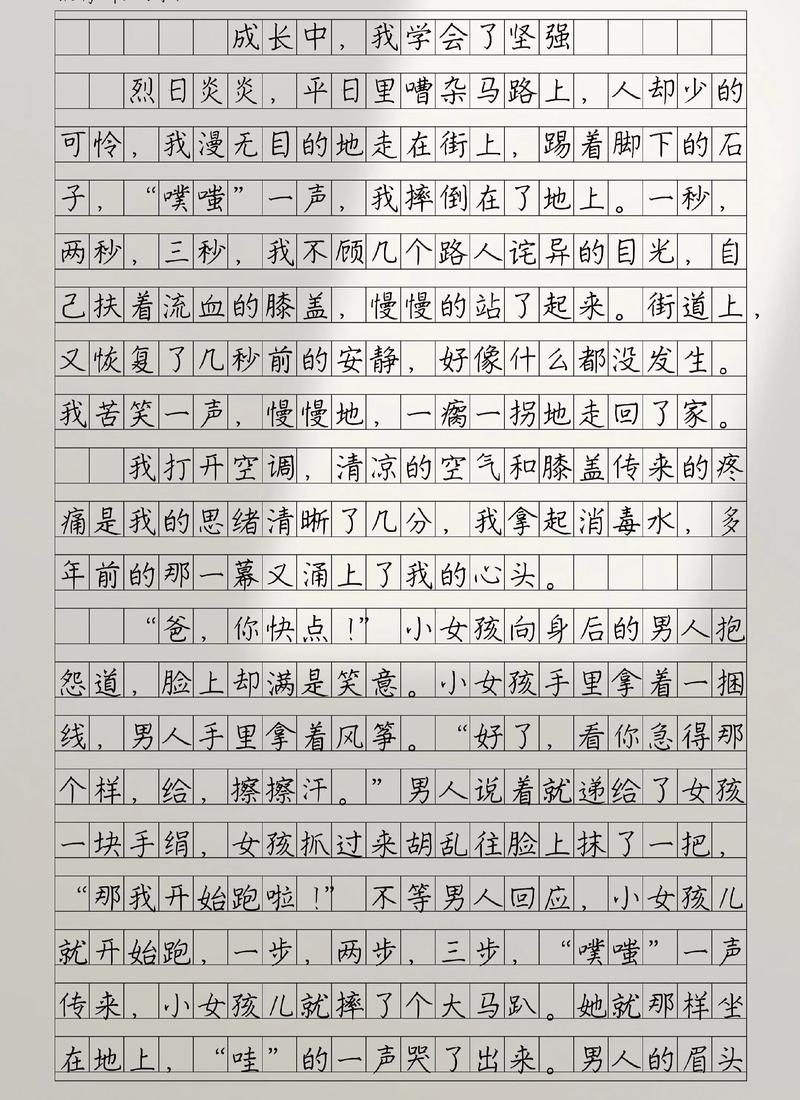 成长中，我学会了坚强
烈日炎炎，平日里嘈杂马路上，人却少的
可怜，我漫无目的地走在街上，踢着脚下的石
子，“噗嗤”一声，我摔倒在了地上。一秒，
两秒，三秒，我不顾几个路人诧异的目光，自
己扶着流血的膝盖，慢慢的站了起来。街道上，
又恢复了几秒前的安静，好像什么都没发生。
我苦笑一声，慢慢地，一瘸一拐地走回了家。
我打开空调，清凉的空气和膝盖传来的疼
痛是我的思绪清晰了几分，我拿起消毒水，多
年前的那一幕又涌上了我的心头。
“爸，你快点！” 小女孩向身后的男人抱
怨道，脸上却满是笑意。小女孩手里拿着一捆
线，男人手里拿着风筝。“好了，看你急得那
个样，给，擦擦汗。”男人说着就递给了女孩
一块手绢，女孩抓过来胡乱往脸上抹了一把，
“那我开始跑啦！” 不等男人回应，小女孩儿
就开始跑，一步，两步，三步，“噗嗤”一声
传来，小女孩儿就摔了个大马趴。她就那样坐
在地上，“哇”的一声哭了出来。男人的眉头